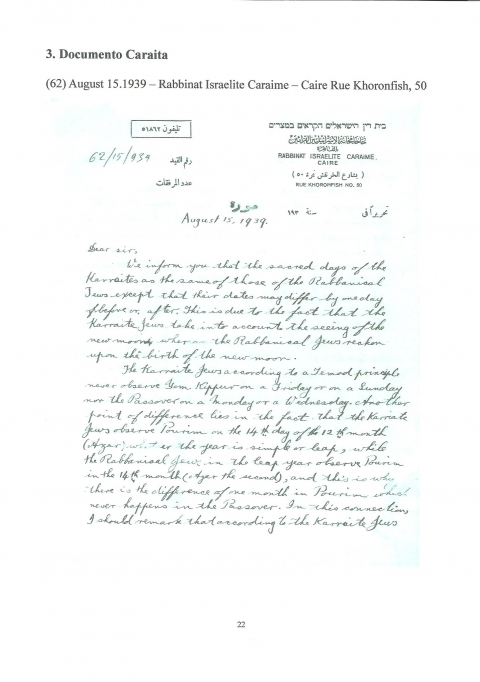 3. Documento Caraita
(62) August 15.1939 – Rabbinat Israelite Caraime – Caire Rue Khoronfish, 50
تليفون ٥١٨٦٢
בית דין הישראלים הקראים במצרים
RABBINAT ISRAELITE CARAIME.
CAIRE
62/15/939
رقم القيد
( بشارع الخرنفش نمرة ٥٠ )
عدد المرفقات
RUE KHORONFISH NO. 50
صورة
تحريراً فى
سنة ١٩٣
August 15, 1939.
Dear sir,
We inform you that the sacred days of the
Karraites as the same of those of the Rabbanical
Jews except that their dates may differ by one day
before or, after. This is due to the fact that the
Karraite Jews take into account the seeing of the
new moon, wher as the Rabbanical Jews reckon
upon the birth of the new moon.
The Karraite Jews according to a principle
never observe Yom Kippur on a Friday or on a Sunday
nor the Passover on a Monday or a Wednesday. Another
point of difference lies in the fact that the Karriate
Jews observe Pourim on the 14th day of the 12th month
(Azar) er the year is simple or leap, while
the Rabbanical Jews in the leap year observe Pourim
in the 14th month (Azar the second), and this is why
there is the difference of one month in Pourim which
never happens in the Passover. In this connection
I should remark that according to the Karraite Jews
22